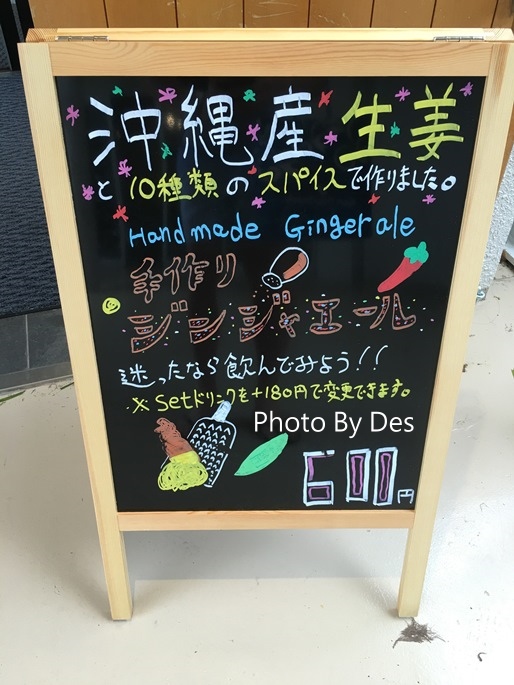 沖縄産生姜
と10種類のスパイスで作りました。
Handmade Gingerale
手作り
ジンジャエール
迷ったなら飲んでみよう!!
※Setドリンクを+180円で変更できます。
Photo By Des
600円